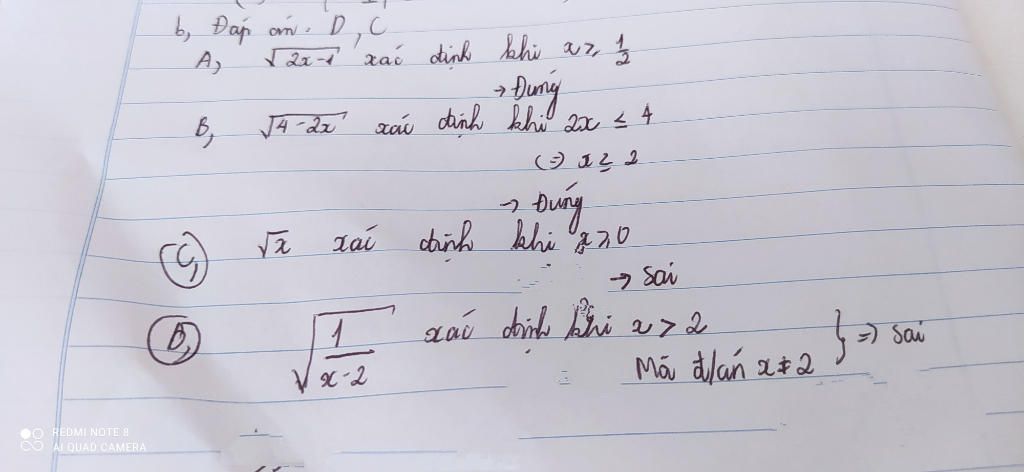 b, Đáp án. D, C
A, √2x-1 xác định khi x ≥ 1/2
→ Đúng
B, √4-2x xác định khi 2x ≤ 4
(=) x ≥ 2
→ Đúng
C, √x xác định khi x ≥ 0
→ sai
D, √1/x-2 xác định khi x > 2
Mà đ/án x ≠ 2 } => sai
REDMI NOTE 8
AI QUAD CAMERA